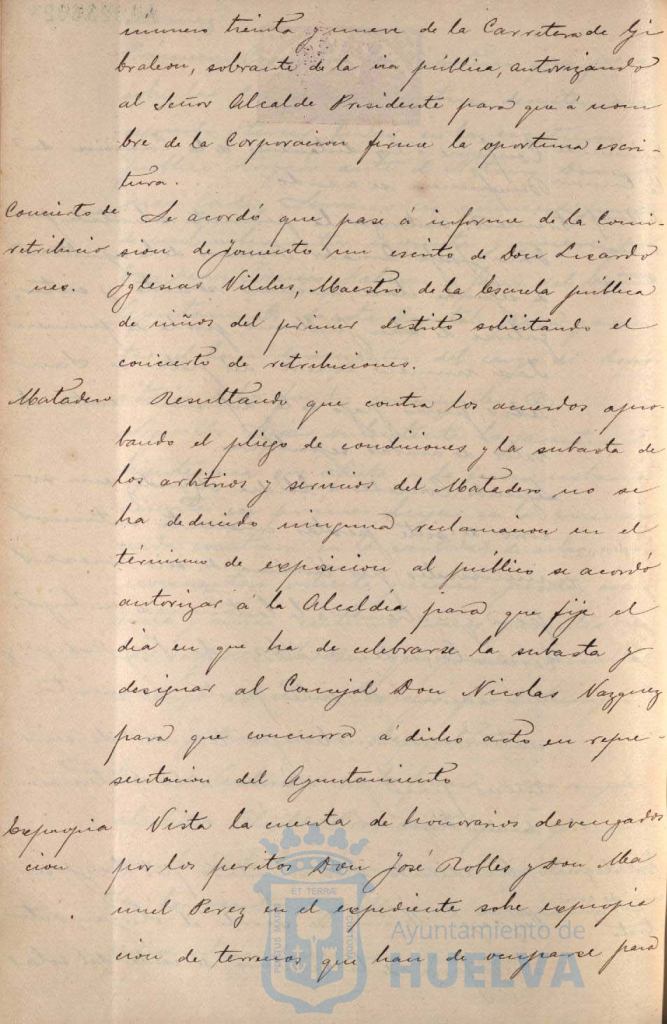 numero treinta y nueve de la Carretera de Gi
braleon, sobrante de la via pública, autorizando
al Señor Alcalde Presidente para que á nom
bre de la Corporacion firme la oportuna escri-
tura.
Concierto de
retribucio
nes.
Se acordó que pase á informe de la Comi-
sion de Fomento un escrito de Don Lisardo
Yglesias Vilches, Maestro de la Escuela pública
de niños del primer distito solicitando el
concierto de retribuciones.
Matadero
Resultando que contra los acuerdos apro-
bando el pliego de condiciones y la subasta de
los arbitrios y servicios del Matadero no se
ha deducido ninguna reclamacion en el
término de exposicion al público se acordó
autorizar á la Alcaldía para que fije el
dia en que ha de celebrarse la subasta y
designar al Concejal Don Nicolas Vazquez
para que concurra á dicho acto en repre-
sentacion del Ayuntamiento
Expropia
cion
Vista la cuenta de honorarios devengados
por los peritos Don José Robles y Don Ma
nuel Perez en el expediente sobre expropia
cion de terrenos que han de ocuparse para
ET TERRÆ
PORTUS MARIS
CUSTODIA
Ayuntamiento de
HUELVA